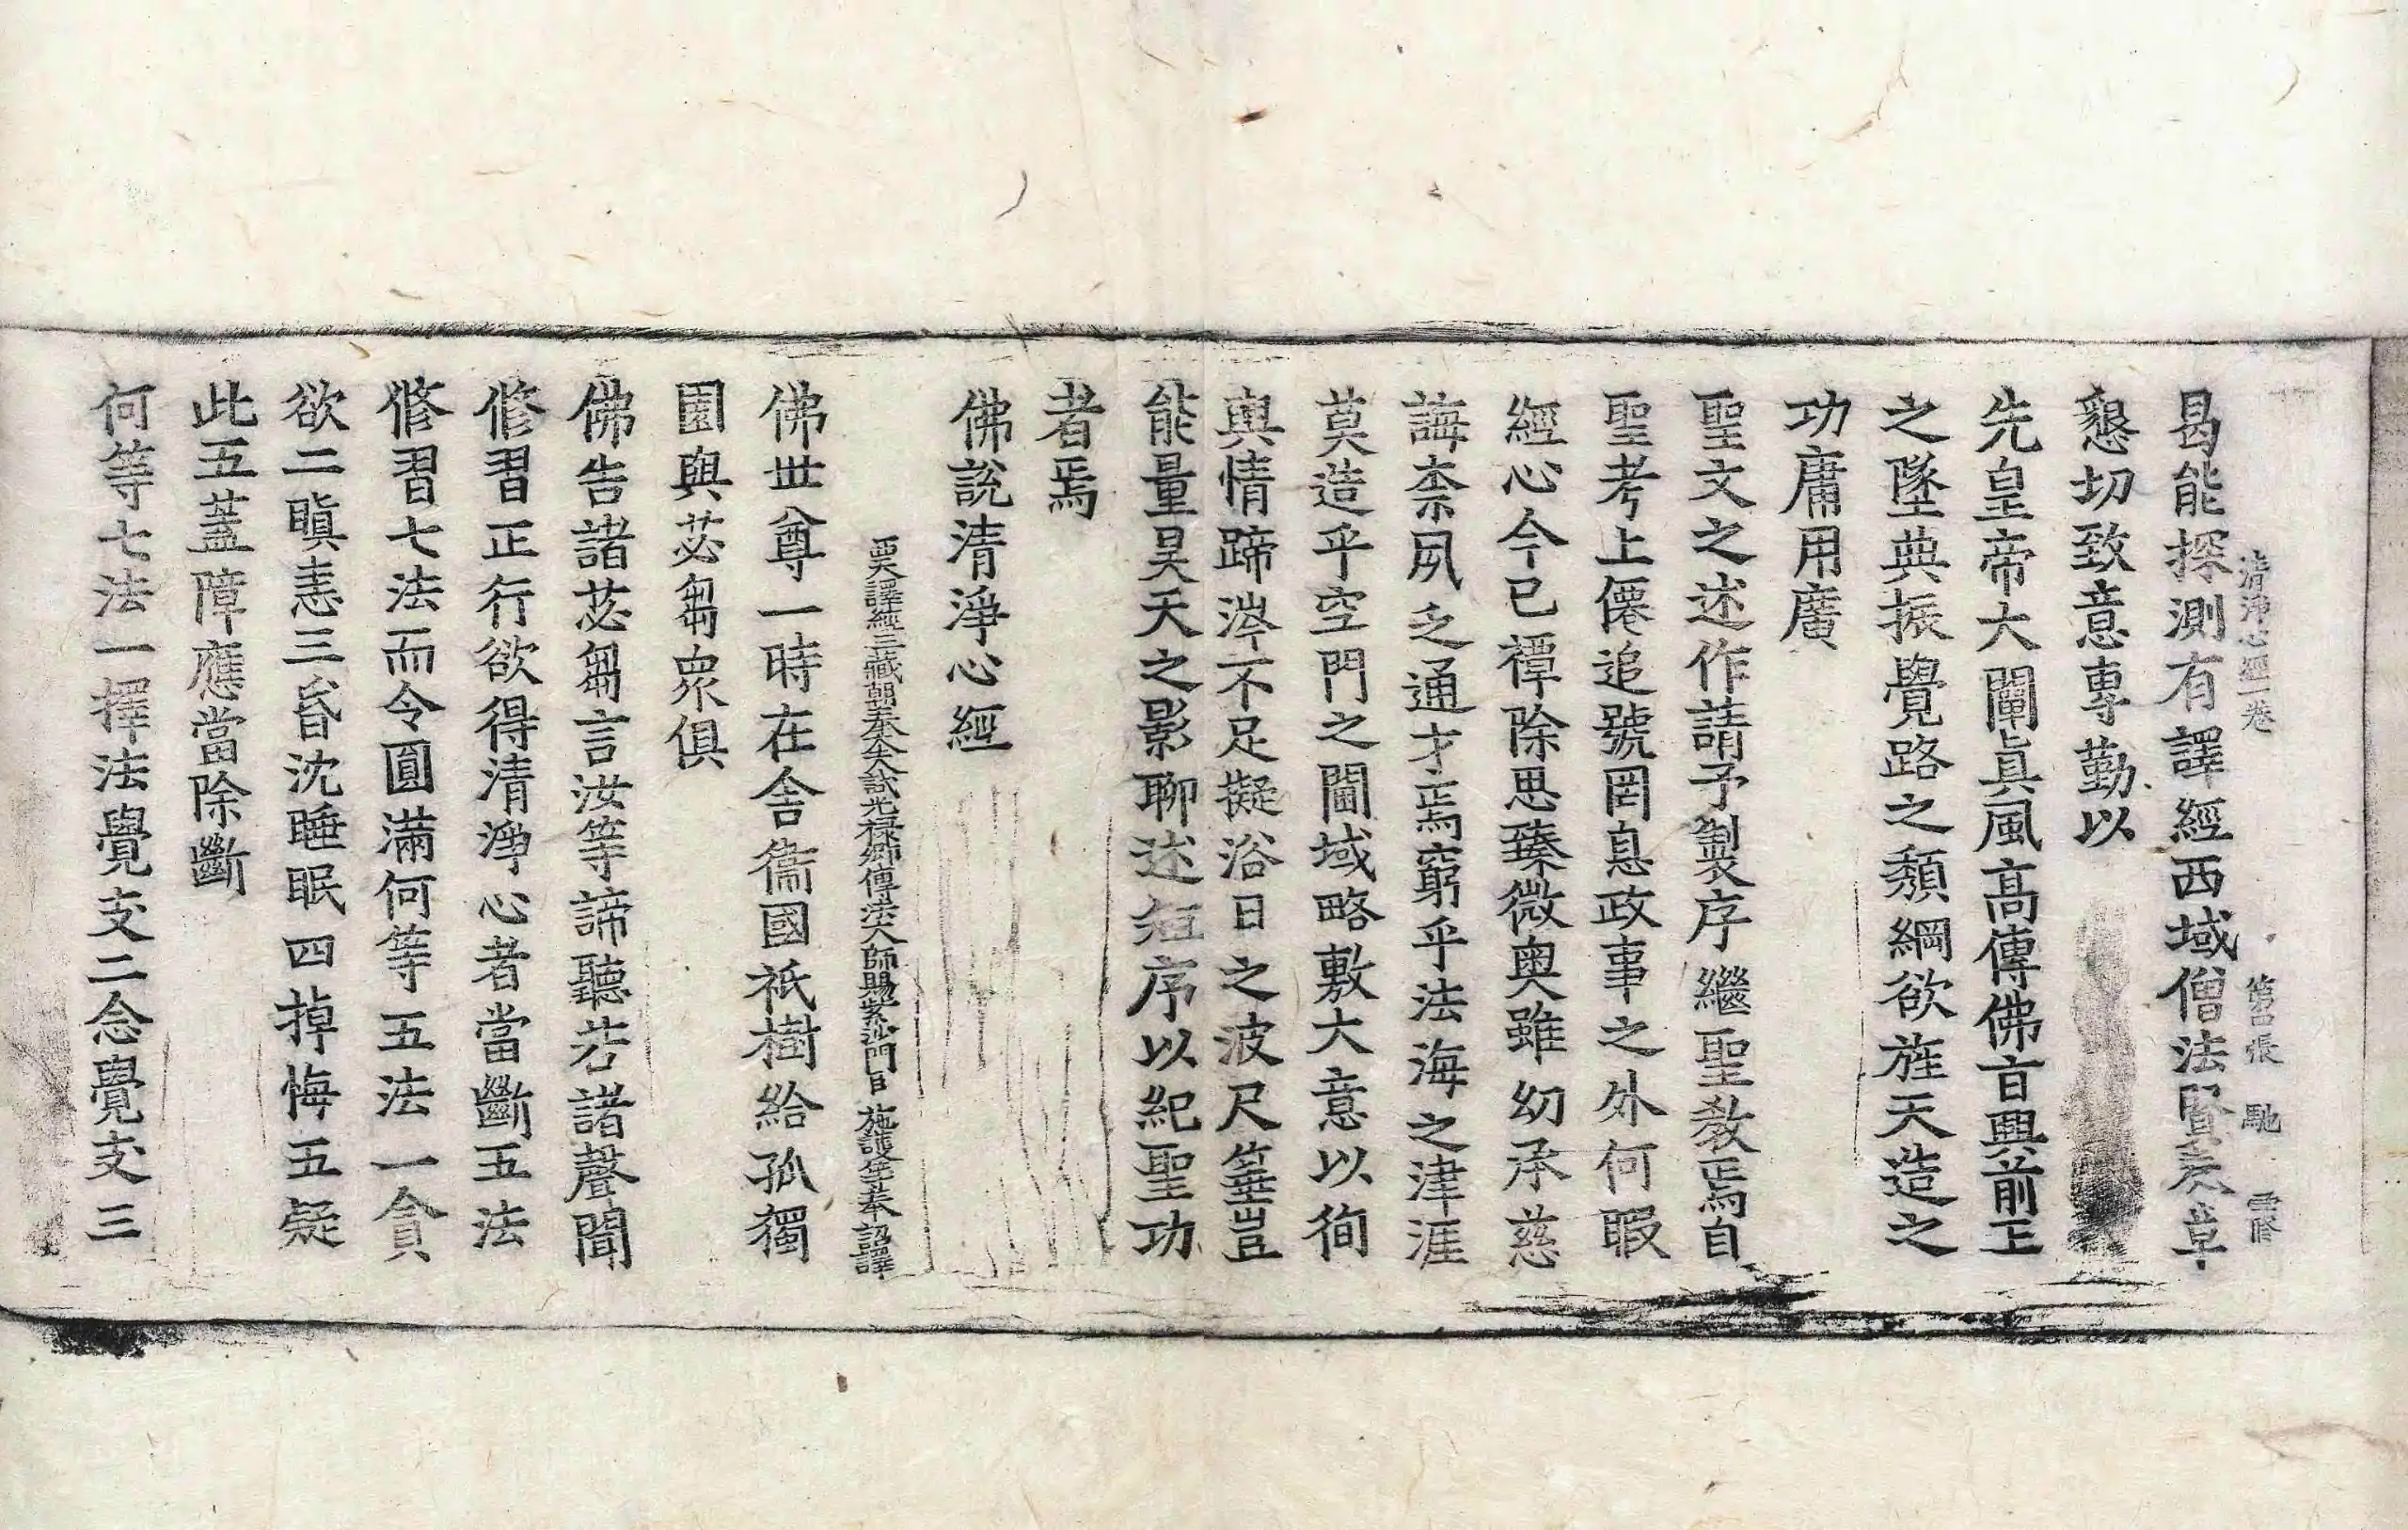 清淨心經一卷　第二張　馳　雪修
曷能探測有譯經西域僧法賢奏章
懇切致意專勤以
先皇帝大闡眞風高傳佛旨興前王
之墜典振覺路之頹綱欲旌天造之
功庸用廣
聖文之述作請予製序繼聖教焉自
聖考上僊追號罔息政事之外何暇
經心今已禫除思臻微奧雖幼承慈
誨柰夙乏通才焉窮乎法海之津涯
莫造乎空門之閫域略敷大意以徇
輿情蹄涔不足擬浴日之波尺箠豈
能量昊天之影聊述短序以紀聖功
者焉
佛說清淨心經
西天譯經三藏朝奉大夫試光祿卿傳法大師賜紫沙門臣施護等奉　詔譯
佛世尊一時在舍衞國祇樹給孤獨
園與苾芻衆俱
佛告諸苾芻言汝等諦聽若諸聲聞
修習正行欲得清淨心者當斷五法
修習七法而令圓滿何等五法一貪
欲二瞋恚三昏沈睡眠四掉悔五疑
此五蓋障應當除斷
何等七法一擇法覺支二念覺支三